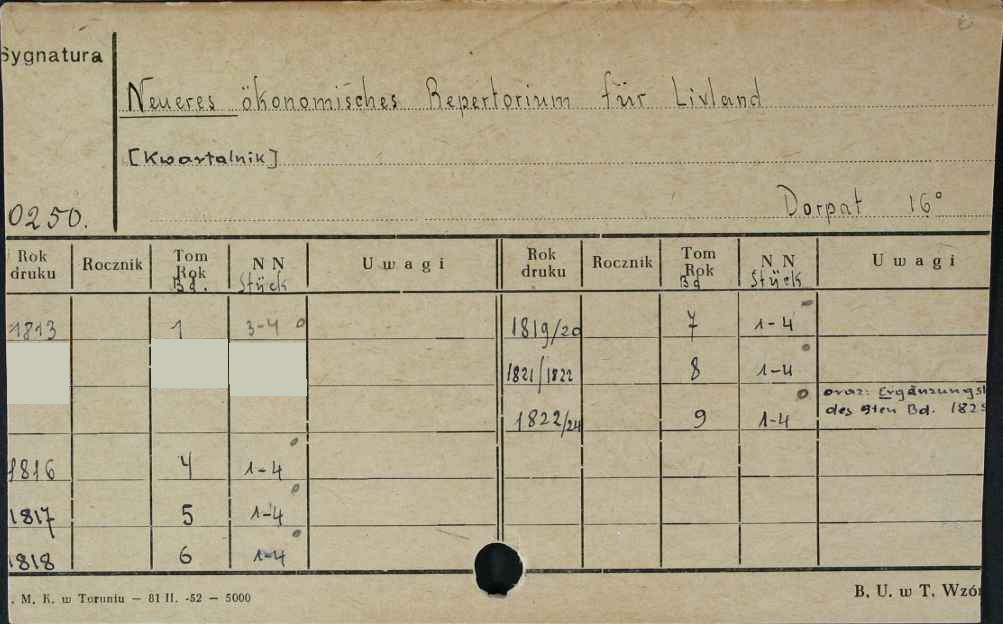 Sygnatura
Neueres ökonomisches Repertorium für Livland
[Kwartalnik]
Dorpat 16°
0250.
Rok druku Rocznik Tom Rok Bd. NN Stück Uwagi Rok druku Rocznik Tom Rok Bd NN Stück Uwagi
1813 1 3-4 1819/20 7 1-4
1821/1822 8 1-4
1822/24 9 1-4 oraz: Ergänzungs
des 9ten Bd. 1825
1816 4 1-4
1817 5 1-4
1818 6 1-4
. M. K. w Toruniu — 81 II. -52 — 5000 B. U. w T. Wzór